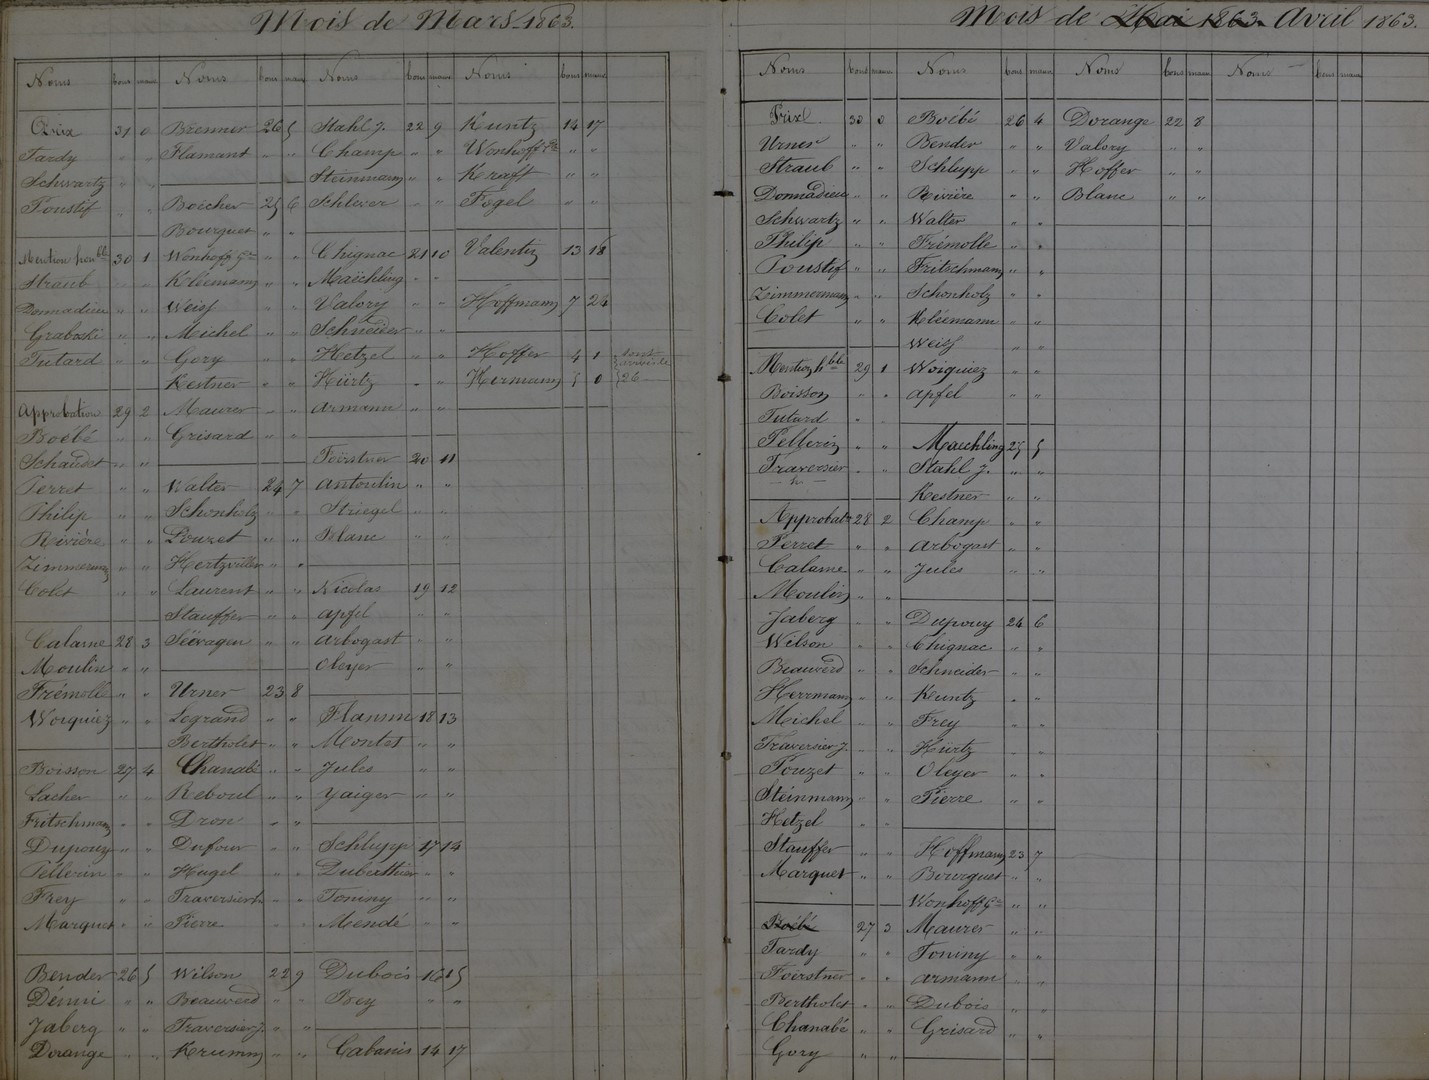 Mois de Mars 1863.
Noms bons mauv
Prix 31 0
Tardy " "
Schwartz " "
Poustif " "
Mention honble 30 1
Straub " "
Donnadieu " "
Graboski " "
Tutard " "
Approbation 29 2
Boébé " "
Schaudet " "
Perret " "
Philip " "
Rivière " "
Zimmermann " "
Colet " "
Calame 28 3
Moulin " "
Frémolle " "
Woiquiez " "
Boisson 27 4
Lacher " "
Fritschmann " "
Dupouy " "
Pellerin " "
Frey " "
Marquet " "
Bender 26 5
Démi " "
Jaberg " "
Dorange " "
Noms bons mauv
Brenner 26 5
Flamant " "
Boicher 25 6
Bourguet " "
Wonhoff Gve " "
Kléemann " "
Weiss " "
Michel " "
Gory " "
Kestner " "
Maurer " "
Grisard " "
Walter 24 7
Schonholz " "
Pouzet " "
Hertzviller " "
Laurent " "
Stauffer " "
Séévagen " "
Urner 23 8
Legrand " "
Bertholet " "
Chanabé " "
Reboul " "
Dron " "
Dufour " "
Hugel " "
Traversier h. " "
Pierre " "
Wilson 22 9
Beauverd " "
Traversier J. " "
Krumm " "
Noms bons mauv
Stahl J. 22 9
Champ " "
Steinmann " "
Schlever " "
Chignac 21 10
Maëchling " "
Valory " "
Schneider " "
Hetzel " "
Hürtz " "
Armann " "
Foerstner 20 11
Antoulin " "
Striegel " "
Blanc " "
Nicolas 19 12
Apfel " "
Arbogast " "
Oleyer " "
Flamm 18 13
Montet " "
Jules " "
Yaiger " "
Schlupp 17 14
Duberthier " "
Toniny " "
Mendé " "
Dubois 16 15
Bey " "
Cabanis 14 17
Noms bons mauv
Kuntz 14 17
Wonhoff Fre " "
Kraft " "
Fogel " "
Valentin 13 18
Hoffmann 7 24
Hoffer 4 1
Hermann 5 0
sont
arrivés le
26
Mois de Mai 1863. Avril 1863.
Noms bons mauv
Prix 30 0
Urner " "
Straub " "
Donnadieu " "
Schwartz " "
Philip " "
Poustif " "
Zimmermann " "
Colet " "
Mention hble 29 1
Boisson " "
Tutard " "
Pellerin " "
Traversier " "
h
Approbatn 28 2
Perret " "
Calame " "
Moulin " "
Jaberg " "
Wilson " "
Beauverd " "
Herrmann " "
Michel " "
Traversier J. " "
Pouzet " "
Steinmann " "
Hetzel " "
Stauffer " "
Marquet " "
Boébé 27 3
Tardy " "
Foerstner " "
Bertholet " "
Chanabé " "
Gory " "
Noms bons mauv
Boébé 26 4
Bender " "
Schlupp " "
Rivière " "
Walter " "
Frémolle " "
Fritschmann " "
Schonholz " "
Kléemann " "
Weiss " "
Woiquiez " "
Apfel " "
Maechling 25 5
Stahl J. " "
Kestner " "
Champ " "
Arbogast " "
Jules " "
Dupouy 24 6
Chignac " "
Schneider " "
Kuntz " "
Frey " "
Hürtz " "
Oleyer " "
Pierre " "
Hoffmann 23 7
Bourguet " "
Wonhoff Gve " "
Maurer " "
Toniny " "
Armann " "
Dubois " "
Grisard " "
Noms bons mauv
Dorange 22 8
Valory " "
Hoffer " "
Blanc " "
Noms bons mauv